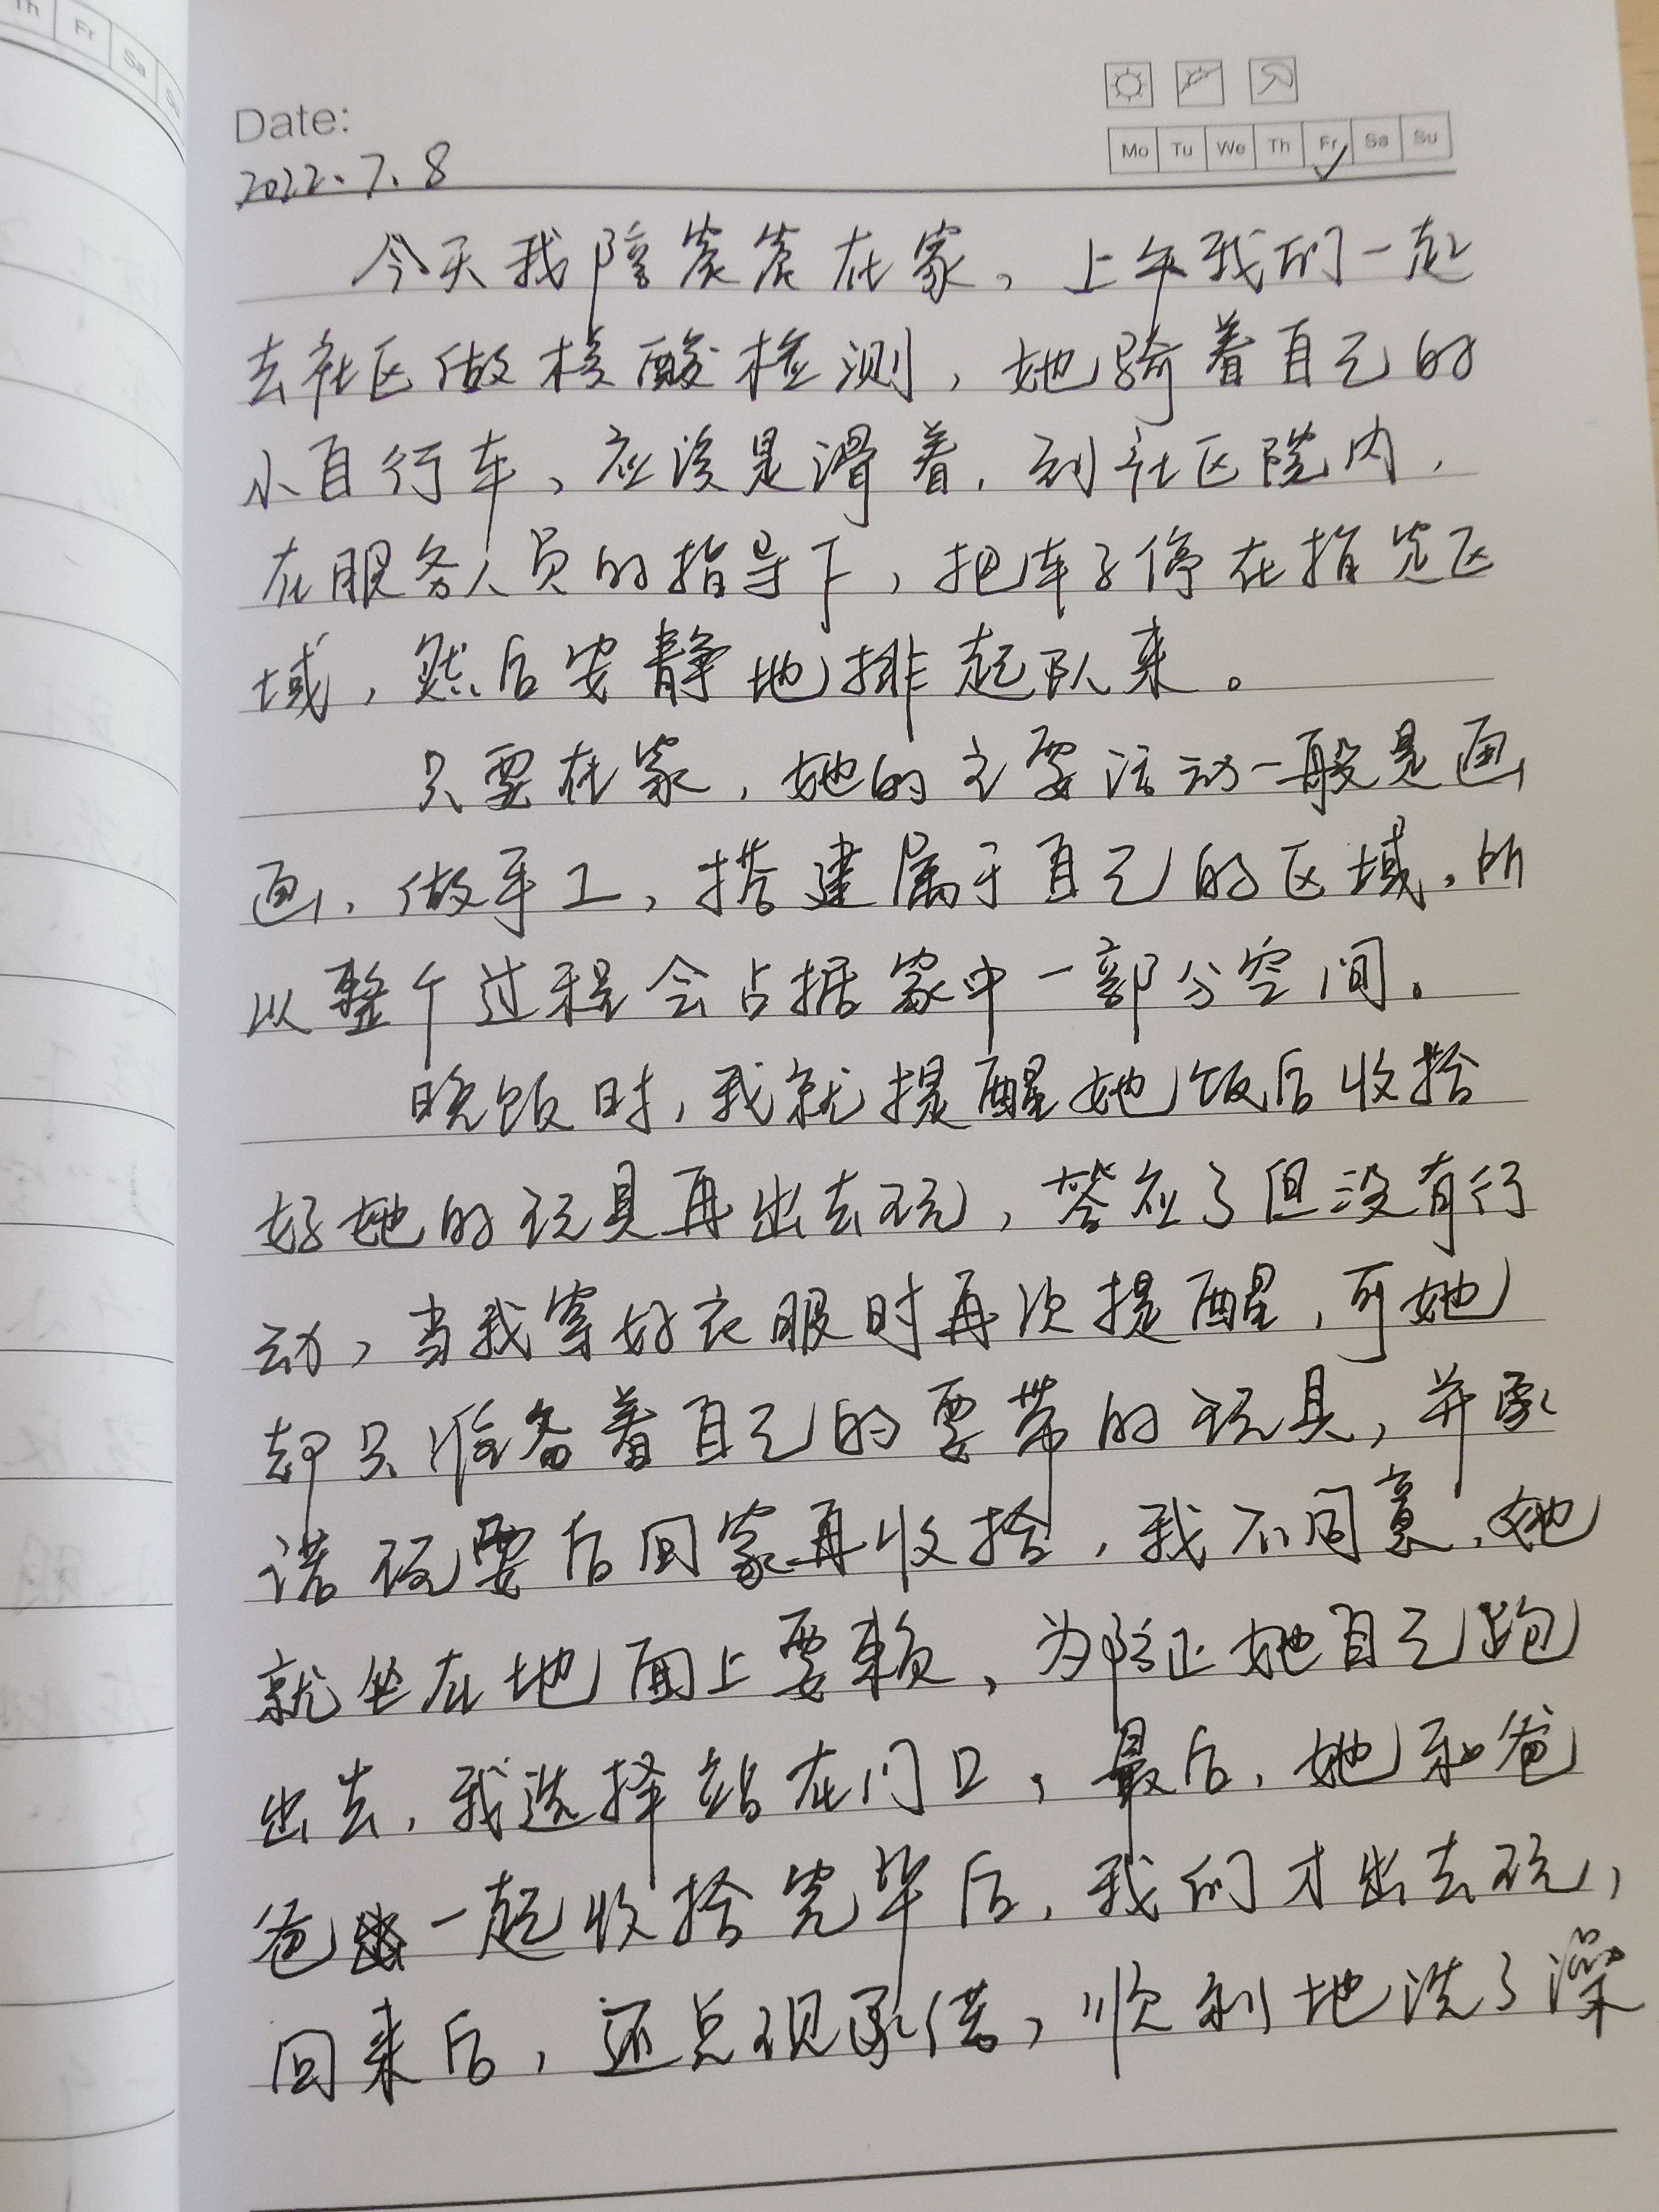 Th Fr Sa Su
Date:
Mo Tu We Th Fr Sa Su
2022.7.8
今天我陪炭炭在家，上午我们一起
去社区做核酸检测，她骑着自己的
小自行车，应该是滑着，到社区院内，
在服务人员的指导下，把车子停在指定区
域，然后安静地排起队来。
只要在家，她的主要活动一般是画
画，做手工，搭建属于自己的区域，所
以整个过程会占据家中一部分空间。
晚饭时，我就提醒她饭后收拾
好她的玩具再出去玩，答应了但没有行
动，当我穿好衣服时再次提醒，可她
却只准备着自己的要带的玩具，并承
诺玩耍后回家再收拾，我不同意，她
就坐在地面上耍赖，为防止她自己跑
出去，我选择站在门口，最后，她和爸
爸一起收拾完毕后，我们才出去玩，
回来后，还兑现承诺，顺利地洗了澡